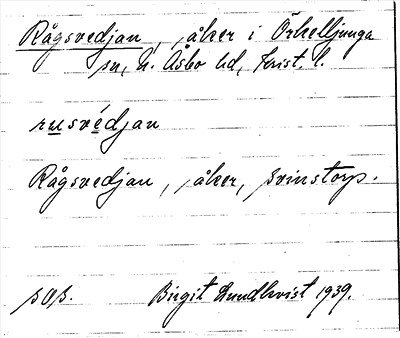 Rågsvedjan, åker i Örkelljunga
sn, N. Åsbo hd, Krist. l.
rusvédjan
Rågsvedjan, åker, Svinstorp.
sOs. Birgit Lundkvist 1939.